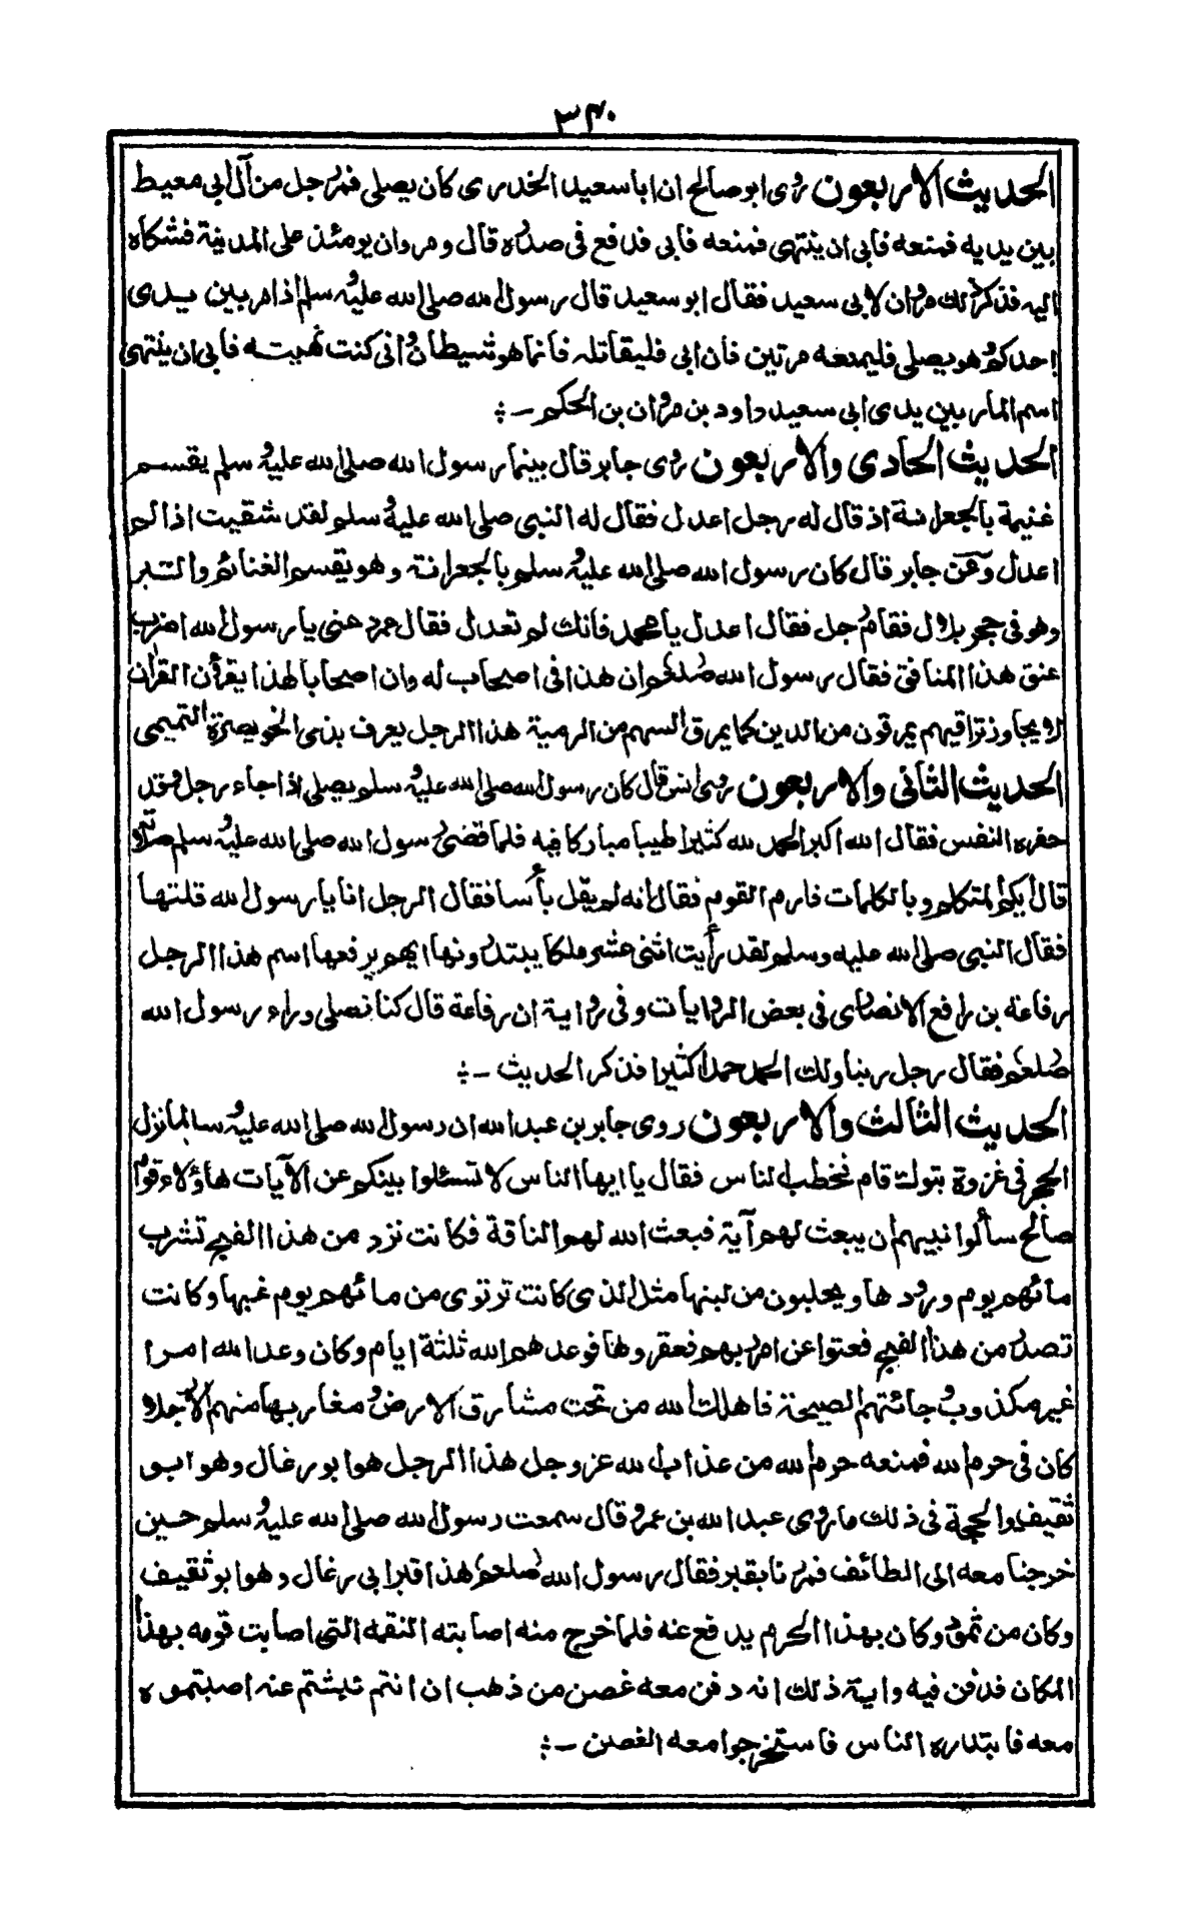 ٣٤٠
الحديث الاربعون روى ابو صالح ان ابا سعيد الخدرى كان يصلى فمر رجل من آل ابى معيط
بين يديه فمنعه فابى ان ينتهى فمنعه فابى فدفع فى صدره قال ومروان يومئذ على المدينة فشكاه
اليه فذكر ذلك مروان لابى سعيد فقال ابو سعيد قال رسول الله صلى الله عليه وسلم اذا مر بين يدى
احدكم وهو يصلى فليمنعه مرتين فان ابى فليقاتله فانما هو شيطان وانى كنت نهيته فابى ان ينتهى
اسم المار بين يدى ابى سعيد داود بن مروان بن الحكم -:
الحديث الحادى والاربعون روى جابر قال بينما رسول الله صلى الله عليه وسلم يقسم
غنيمة بالجعرانة اذ قال له رجل اعدل فقال له النبى صلى الله عليه وسلم لقد شقيت اذا لم
اعدل وعن جابر قال كان رسول الله صلى الله عليه وسلم بالجعرانة وهو يقسم الغنائم والتبر
وهو فى حجر بلال فقام رجل فقال اعدل يا محمد فانك لم تعدل فقال عمر دعنى يا رسول الله اضرب
عنق هذا المنافق فقال رسول الله صلعم ان هذا فى اصحاب له وان اصحابا لهذا يقرأن القرأن
لا يجاوز تراقيهم يمرقون من الدين كما يمرق السهم من الرمية هذا الرجل يعرف بذى الخويصرة التميمى
الحديث الثانى والاربعون روى انس قال كان رسول الله صلى الله عليه وسلم يصلى اذا جاء رجل وقد
حفزه النفس فقال الله اكبر الحمد لله كثيرا طيبا مباركا فيه فلما قضى رسول الله صلى الله عليه وسلم صلاته
قال ايكم المتكلم بالكلمات فارم القوم فقال انه لم يقل بأسا فقال الرجل انا يا رسول الله قلتها
فقال النبى صلى الله عليه وسلم لقد رأيت اثنى عشر ملكا يبتدرونها ايهم يرفعها اسم هذا الرجل
رفاعة بن رافع الانصارى فى بعض الروايات وفى رواية ان رفاعة قال كنا نصلى وراء رسول الله
صلعم فقال رجل ربنا ولك الحمد حمدا كثيرا فذكر الحديث -:
الحديث الثالث والاربعون روى جابر بن عبد الله ان رسول الله صلى الله عليه وسلم لما نزل
الحجر فى غزوة تبوك قام فخطب الناس فقال يا ايها الناس لا تسئلوا بينكم عن الآيات هاؤلاء قوم
صالح سألوا نبيهم ان يبعث لهم آية فبعث الله لهم الناقة فكانت نزد من هذا الفج تشرب
مائهم يوم ورودها ويحلبون من لبنها مثل الذى كانت ترتوى من مائهم يوم غبها وكانت
تصدر من هذا الفج فعتوا عن امر ربهم فعقروها فوعدهم الله ثلثة ايام وكان وعد الله امرا
غير مكذوب وجائتهم الصيحة فاهلك الله من تحت مشارق الارض ومغاربها منهم الا رجلا
كان فى حرم الله فمنعه حرم الله من عذاب الله عز وجل هذا الرجل هو ابو رغال وهو ابو
ثقيف والحجة فى ذلك ما روى عبد الله بن عمرو قال سمعت رسول الله صلى الله عليه وسلم حين
خرجنا معه الى الطائف فمررنا بقبر فقال رسول الله صلعم هذا قبر ابى رغال وهو ابو ثقيف
وكان من ثمود وكان بهذا الحرم يدفع عنه فلما خرج منه اصابته النقمه التى اصابت قومه بهذا
المكان فدفن فيه واية ذلك انه دفن معه غصن من ذهب ان انتم نبشتم عنه اصبتموه
معه فابتدره الناس فاستخرجوا معه الغصن -: